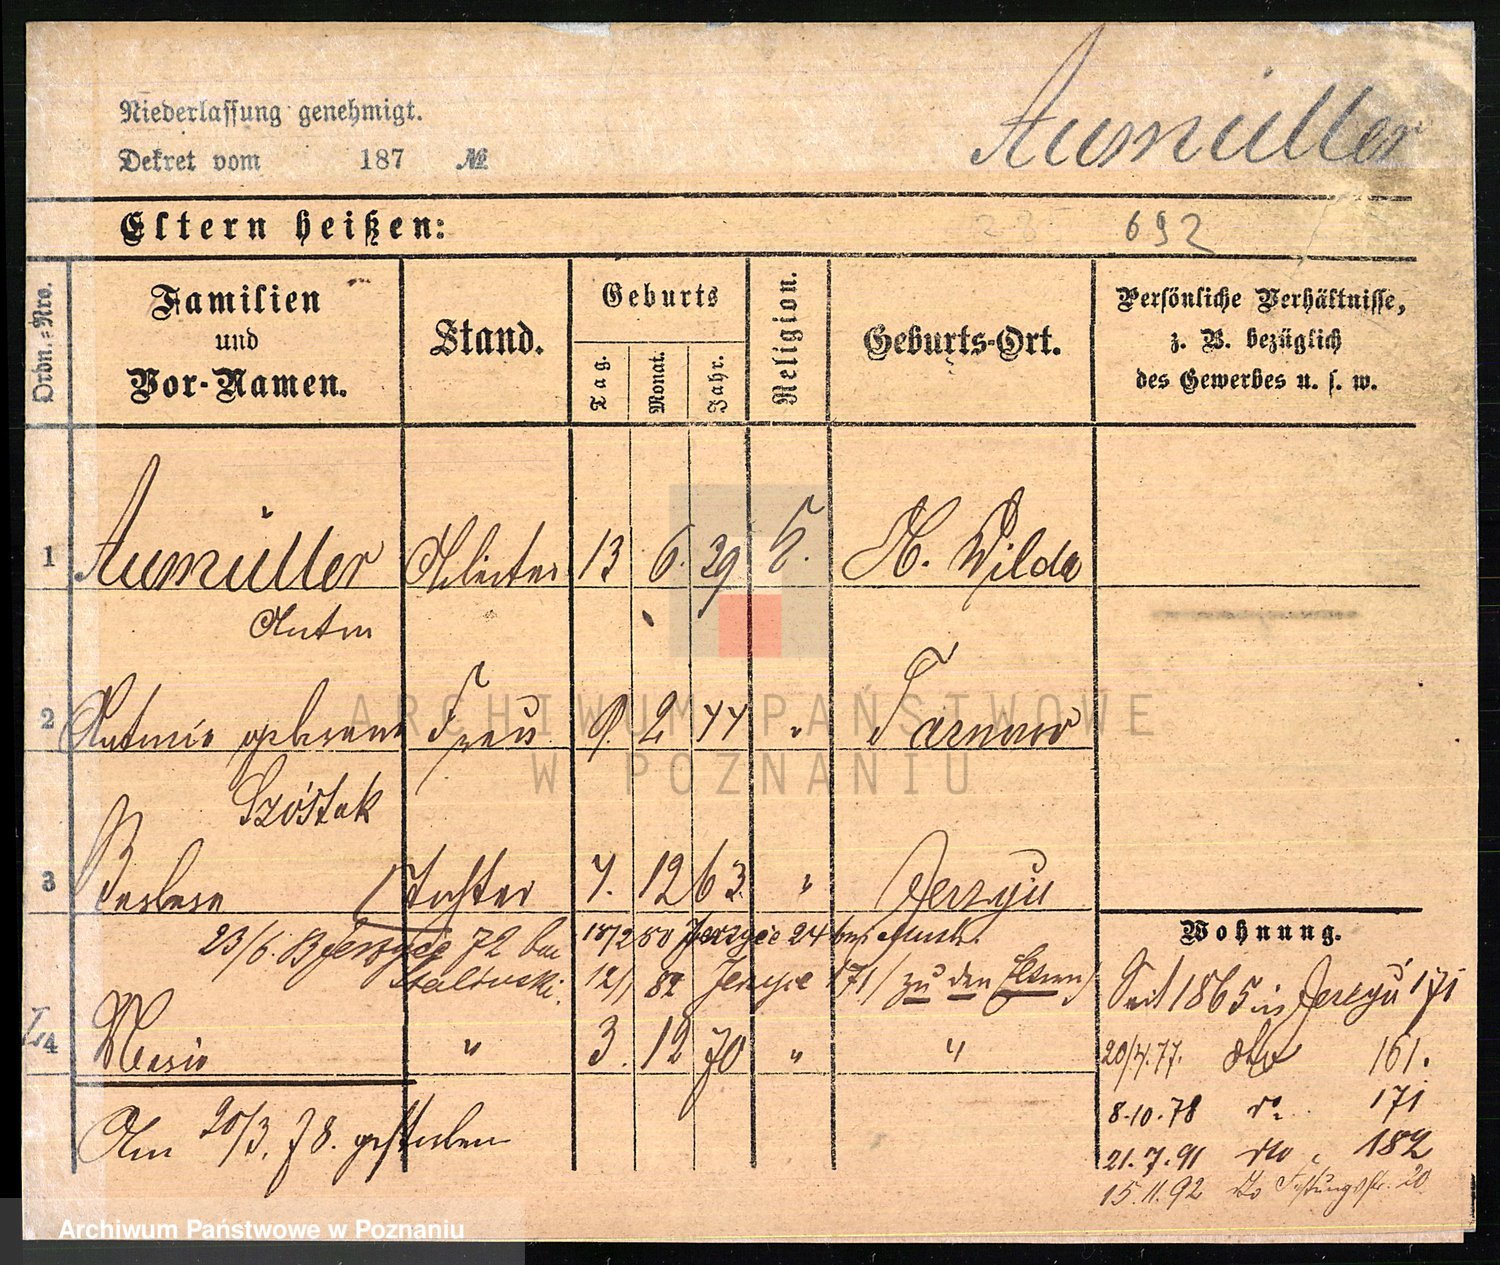 Niederlassung genehmigt.
Dekret vom 187 №
Aumüller
Eltern heißen:
692
Ordn.=Nro.
Familien
und
Vor-Namen.
Stand.
Geburts
Tag.
Monat.
Jahr.
Religion.
Geburts-Ort.
Persönliche Verhältnisse,
z. B. bezüglich
des Gewerbes u. s. w.
1 Aumüller Arbeiter 13 6. 29 K. Wilda
Anton
2 Antonie geborene Frau 9. 2 44 " Tarnowo
Szóstak
3 Barbara Tochter 7. 12 63. " Jerzyce
23/6. 83 Jerzyce 72 bei 18/2 80 Jerzyce 24 bei
12/1 82 Jerzyce 171 (zu den Eltern)
4 Marie " 3. 12 70 " "
Am 20/3. 78. gestorben
Wohnung.
Seit 1865 in Jerzyce 171
20/4. 77. dto 161.
8.10.78 do. 171
21.7.91 dto. 182
15.11.92 do Festungsstr. 20
ARCHIWUM PAŃSTWOWE
W POZNANIU
Archiwum Państwowe w Poznaniu